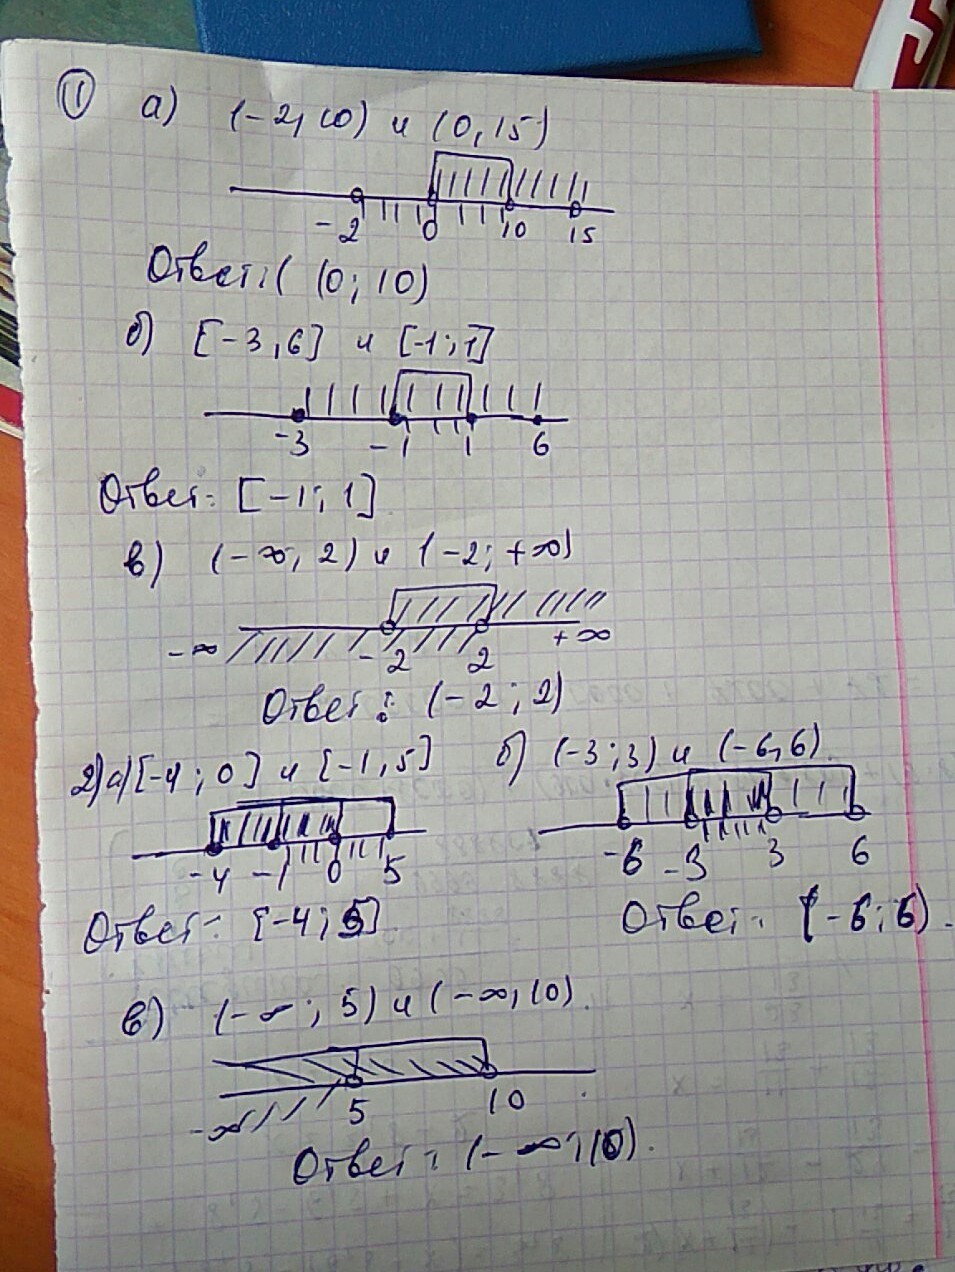 ① а) (-2, 10) и (0, 15)
-2 0 10 15
Ответ: ( (0; 10)
б) [-3, 6] и [-1; 1]
-3 -1 1 6
Ответ: [-1; 1]
в) (-∞; 2) и (-2; +∞)
-∞ -2 2 +∞
Ответ: (-2; 2)
2) а) [-4; 0] и [-1, 5]
-4 -1 0 5
Ответ: [-4; 5]
б) (-3; 3) и (-6, 6)
-6 -3 3 6
Ответ: (-6; 6).
в) (-∞; 5) и (-∞, 10).
-∞ 5 10
Ответ: (-∞; 10).